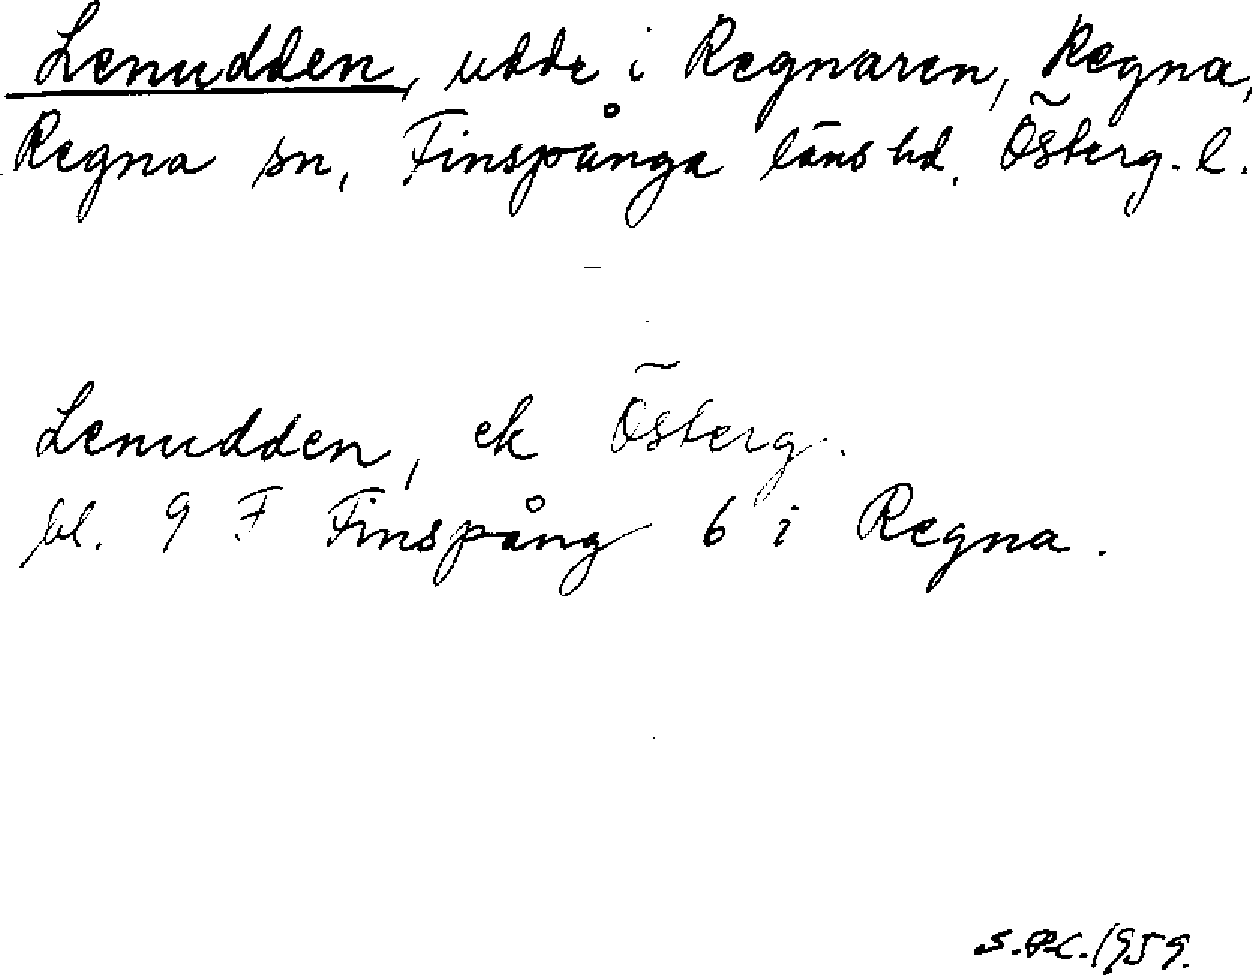 Lenudden, udde i Regnaren, Regna,
Regna sn, Finspånga läns hd. Österg. l.
Lenudden, ek Österg.
bl. 9 F Finspång 6 i Regna.
1959.